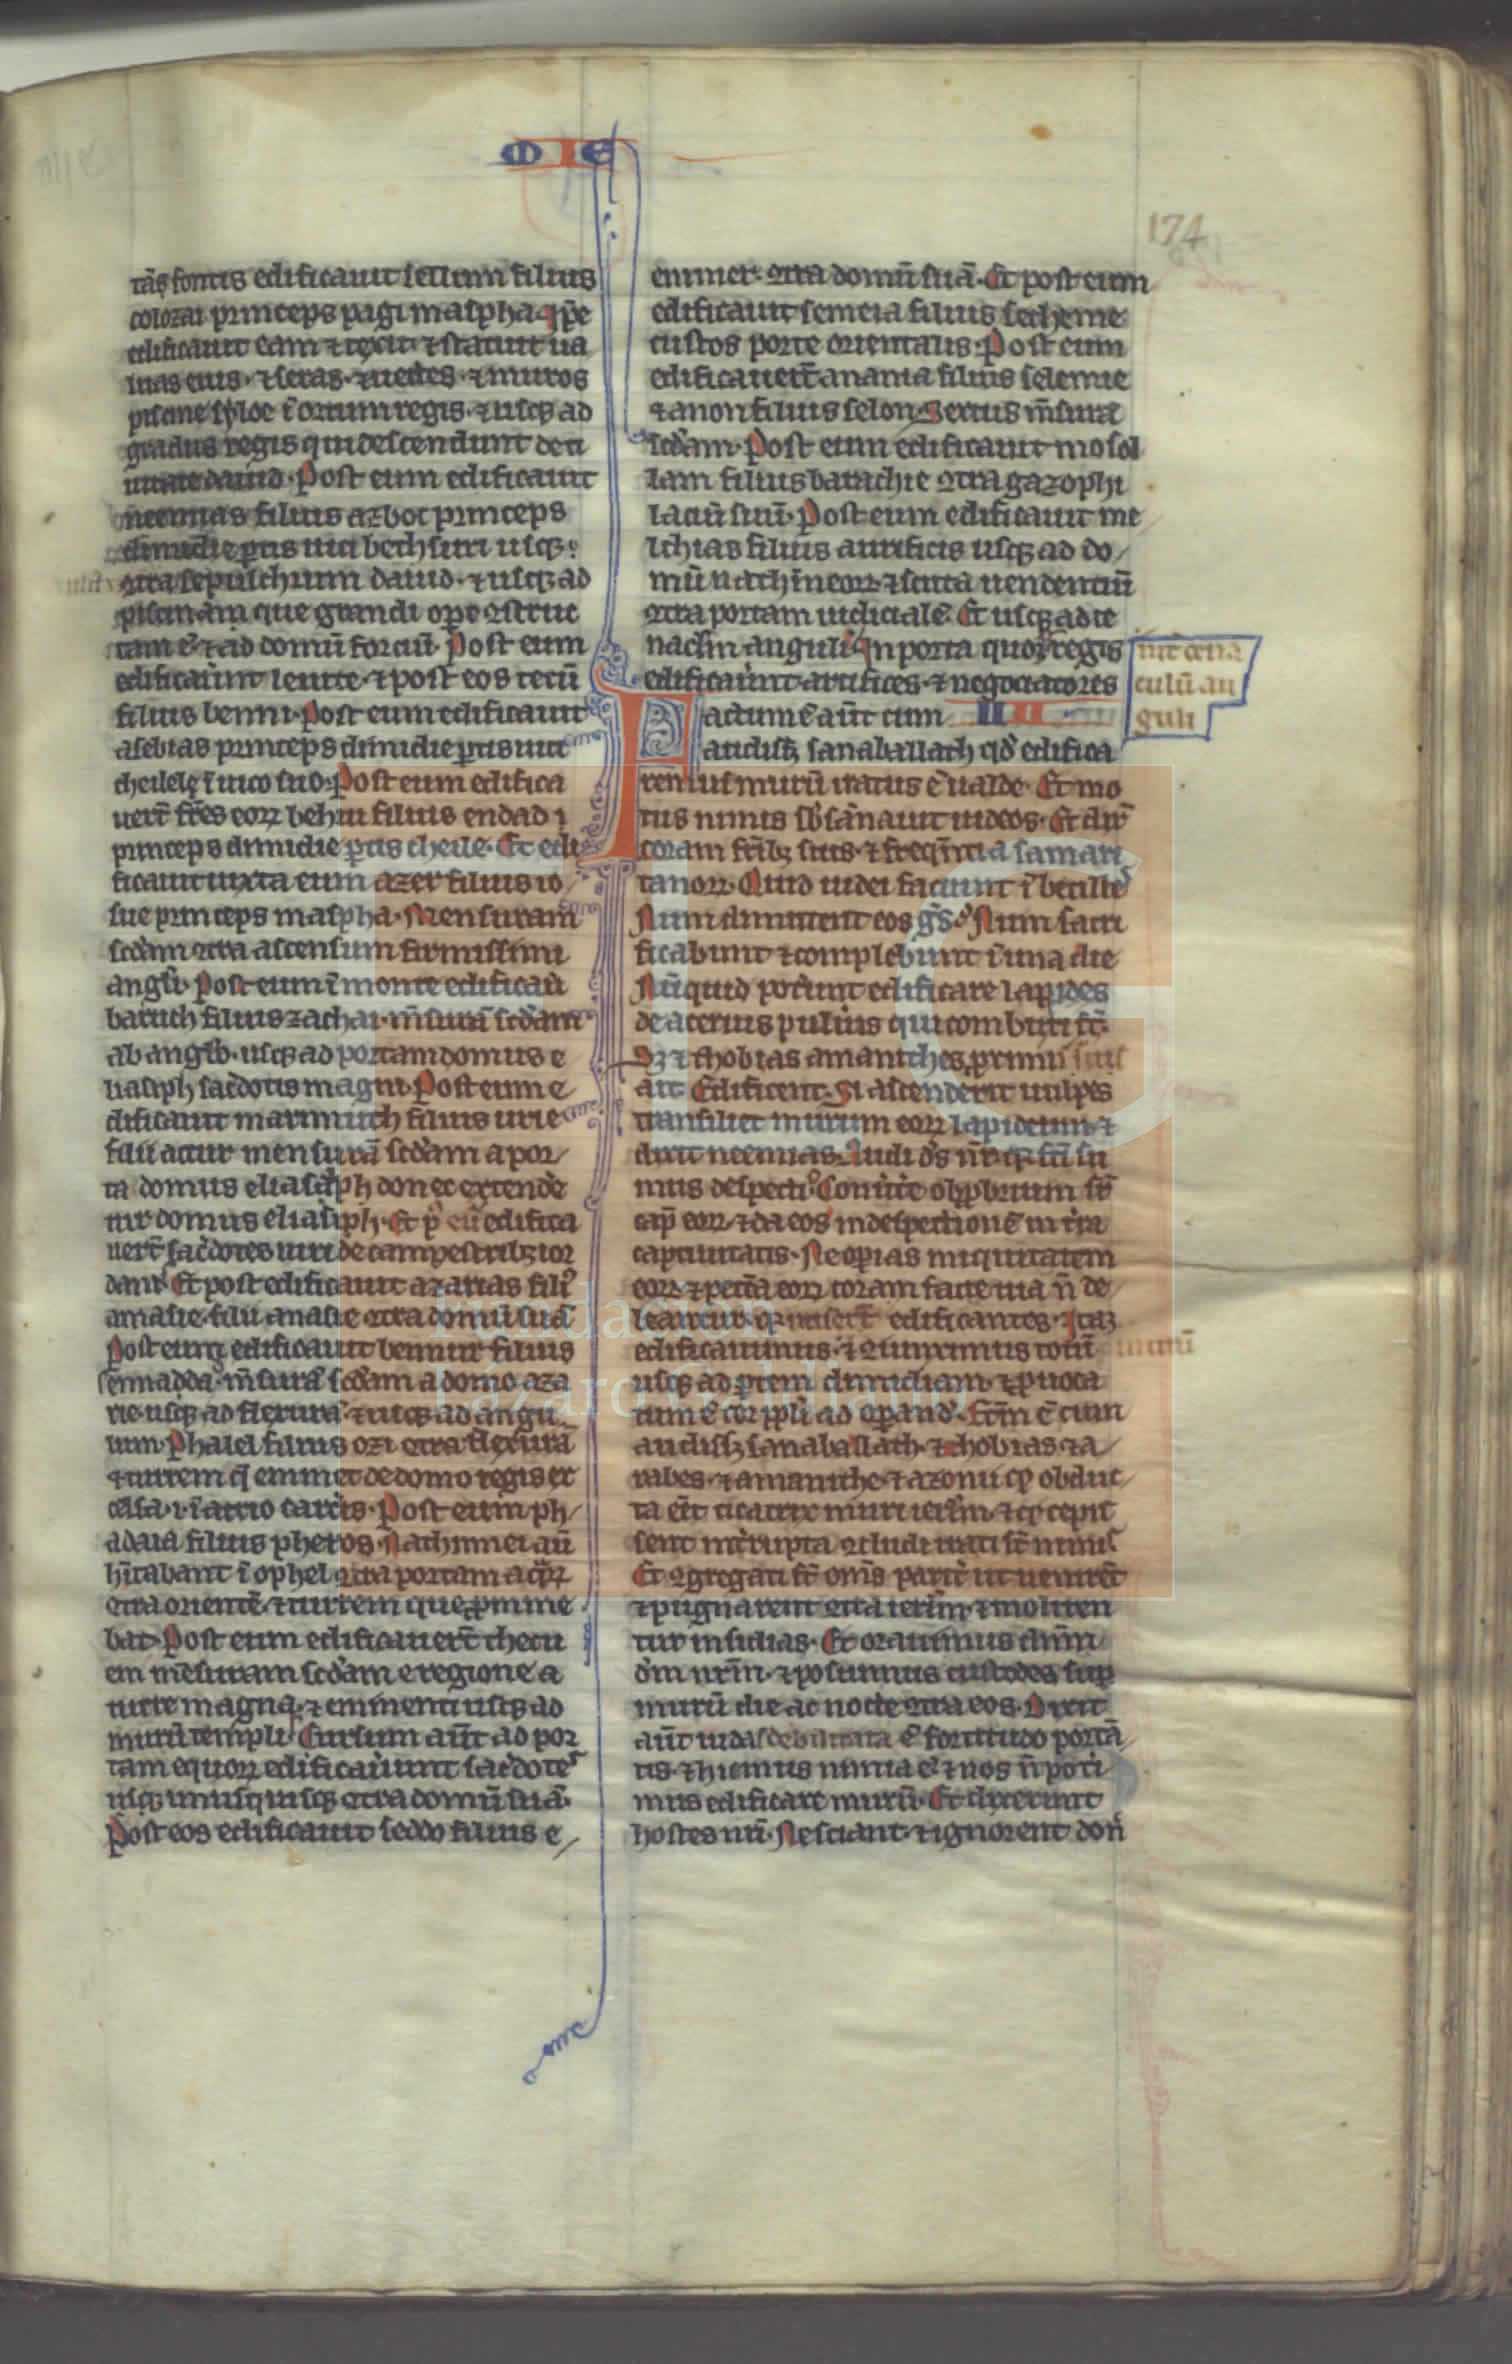 MIE
174
tas fontis edificauit sellum filius
colozai princeps pagi maspha. ipe
edificauit eam ⁊ texit. ⁊ statuit ua
luas eius. ⁊ seras. ⁊ uectes. ⁊ muros
piscine syloe ī ortum regis. ⁊ usqꝫ ad
gradus regis qui descendunt de ci
uitate dauid. Post eum edificauit
neemias filius azboc princeps
dimidie ꝑtis uici bethsuri usqꝫ
ꝯtra sepulchrum dauid. ⁊ usqꝫ ad
piscinam que grandi oꝑe ꝯstruc
tam ē. ⁊ ad domū forciū. Post eum
edificauunt leuite. ⁊ post eos recū
filius benni. Post eum edificauit
asebias princeps dimidie ꝑtis uici
cheilele ī uico suo. Post eum edifica
uert̄ fr̄es eoꝝ behui filius endad i
princeps dimidie ꝑtis cheile. Et edi
ficauit iuxta eum azer filius io
sue princeps maspha. Mensuram
scd̄am ꝯtra ascensum firmissimi
angli. Post eum ī monte edificau
baruch filius zachai. m̄surā scd̄am
ab anglo. usqꝫ ad portam domus e
liasiph sacdotis magni. Post eum e
dificauit marimuth filius urie
filii accur mensurā scd̄am a por
ta domus eliasiph donec extende
tur domus eliasiph. Et p̄ eū edifica
uert̄ sacdotes uiri de campestribꝫ ior
danis. Et post edificauit azarias fili
amasie. filii anasie ꝯtra domū suā
Post eum edificauit bennui filius
ennadda. m̄surā scd̄am a domo aza
rie usqꝫ ad flexurā. ⁊ usqꝫ ad angu
lum. Phalel filius ozi ꝯtra flexurā
⁊ turrem q̄ eminet de domo regis ex
celsa. i. ī atrio carcis. Post eum ph
adaia filius pheros. Nathinnei au
hitabant ī ophel ꝯtra portam aq̄ꝝ
ꝯtra orientē. ⁊ turrem que ꝓmine
bat. Post eum edificauert̄ thecu
em mēsuram scd̄am e regione a
turre magna. ⁊ eminenti usqꝫ ad
murū templi. Sursum aūt ad por
tam equoꝝ edificauunt sacdotes
usqꝫ unusquisqꝫ ꝯtra domū suā.
Post eos edificauit seddo filius e
emmer. ꝯtra domū suā. Et post eum
edificauit semeia filius secheme
custos porte orientalis. Post eum
edificauert̄ anania filius selemie
⁊ anon filius selon. Sextus m̄surā
scd̄am. Post eum edificauit mosol
lam filius barachie ꝯtra gazophi
laciū suū. Post eum edificauit me
lchias filius aurificis usqꝫ ad do
mū nathineoꝝ. ⁊ scuta uendentiū
ꝯtra portam iudicialē. Et usqꝫ ad ce
naclm anguli. In porta quoqꝫ regis
edificauunt artifices. ⁊ negociatores
int cena
culū an
guli
Factum ē aūt cum IIII
audissꝫ sanaballath qd̄ edifica
remus murū iratus ē ualde. Et mo
tus nimis sb̄sannauit iudeos. Et dix̄
coram fr̄ibꝫ suis. ⁊ freq̄ntia samari
tanoꝝ. Quid iudei faciunt ībecilles
Num dimittent eos gs̄. Num sacri
ficabunt ⁊ complebunt ī una die
Nūquid pot̄unt edificare lapides
de aceruis pulius qui combusti st̄.
Sꝫ ⁊ thobias amanithes ꝓximus eius
ait. Edificent. Si ascenderit uulpes
transiliet murum eoꝝ lapideum. ⁊
dixit neemias. Audi ds̄ nr̄ qꝫ fc̄i su
mus despectio. Conūte obꝓbrium sr̄
cap̄ eoꝝ. ⁊ da eos in despectionē in tr̄a
captiuitatis. Ne oꝑias iniquitatem
eoꝝ. ⁊ pecc̄a eoꝝ coram facie tua n̄ de
leantur. qꝫ irriser̄t edificantes. Itaqꝫ
edificauimus. ⁊ ꝯiunximus totū murū
usqꝫ ad ꝑtem dimidiam. ⁊ ꝓuoca
tum ē cor ppli ad oꝑand. Fc̄m ē cum
audissꝫ sanaballath. ⁊ thobias. ⁊ a
rabes. ⁊ amanithe. ⁊ azonii qꝫ obduc
ta eēt cicatrix muri ierlm̄. ⁊ qꝫ cepis
sent int̄rupta ꝯcludi irati st̄ nimis
Et ꝯgregati st̄ om̄s parit̄ ut uenirēt
⁊ pugnarent ꝯtra ierlm̄. ⁊ moliren
tur insidias. Et orauimus dnm̄
dm̄ nrm̄. ⁊ posuimus custodes suꝑ
murū die ac nocte ꝯtra eos. Dixit
aūt iudas debilitata ē fortitudo portā
tis. ⁊ humus nimia ē. ⁊ nos n̄ poti
mus edificare murū. Et dixerunt
hostes nr̄i. Nesciant. ⁊ ignorent don̄
Fundación
Lázaro Galdiano